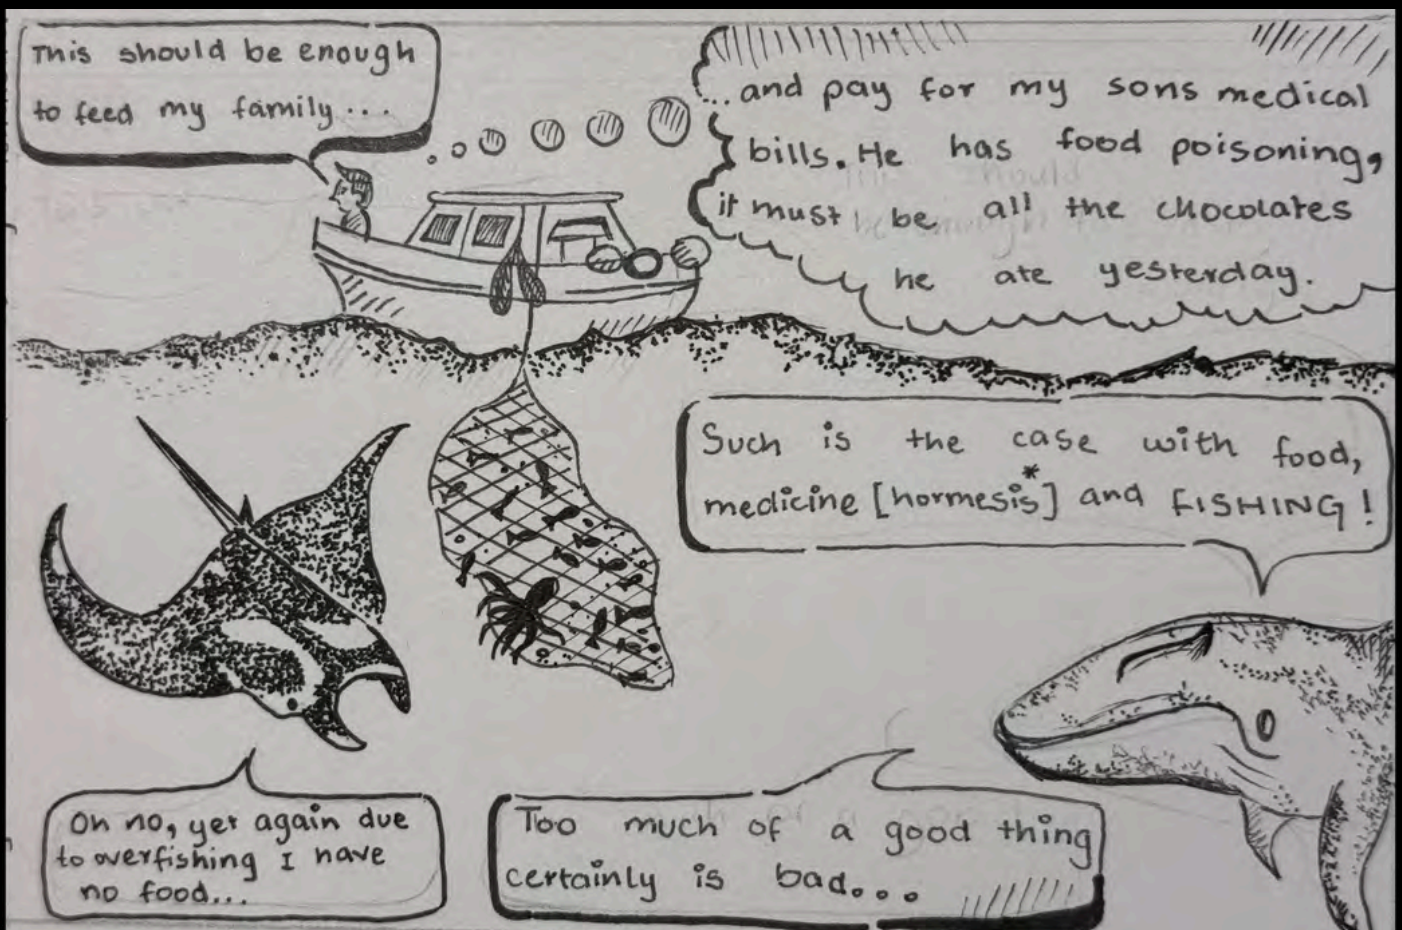 This should be enough
to feed my family...
...and pay for my sons medical
bills. He has food poisoning,
it must be all the chocolates
he ate yesterday.
Such is the case with food,
medicine [hormesis*] and FISHING!
Oh no, yet again due
to overfishing I have
no food...
Too much of a good thing
certainly is bad...